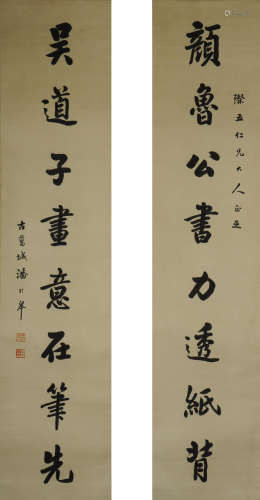 顏魯公書力透紙背
際五仁兄大人正之
吳道子畫意在筆先
古葛城潘齡皋